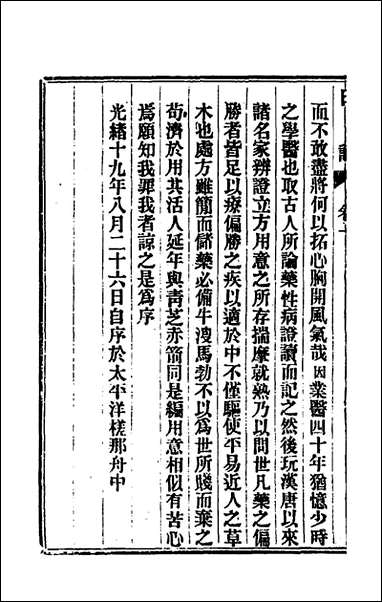 而不敢盡將何以拓心胸開風氣哉因業醫四十年猶憶少時
之學醫也取古人所論藥性病證讀而記之然後玩漢唐以來
諸名家辨證立方用意之所存揣摩就熟乃以問世凡藥之偏
勝者皆足以療偏勝之疾以適於中不僅驅使平易近人之草
木也處方雖簡而儲藥必備牛溲馬勃不以為世所賤而棄之
苟濟於用其活人延年與靑芝赤箭同是編用意相似有苦心
焉願知我罪我者諒之是爲序
光緒十九年八月二十六日自序於太平洋槎那舟中